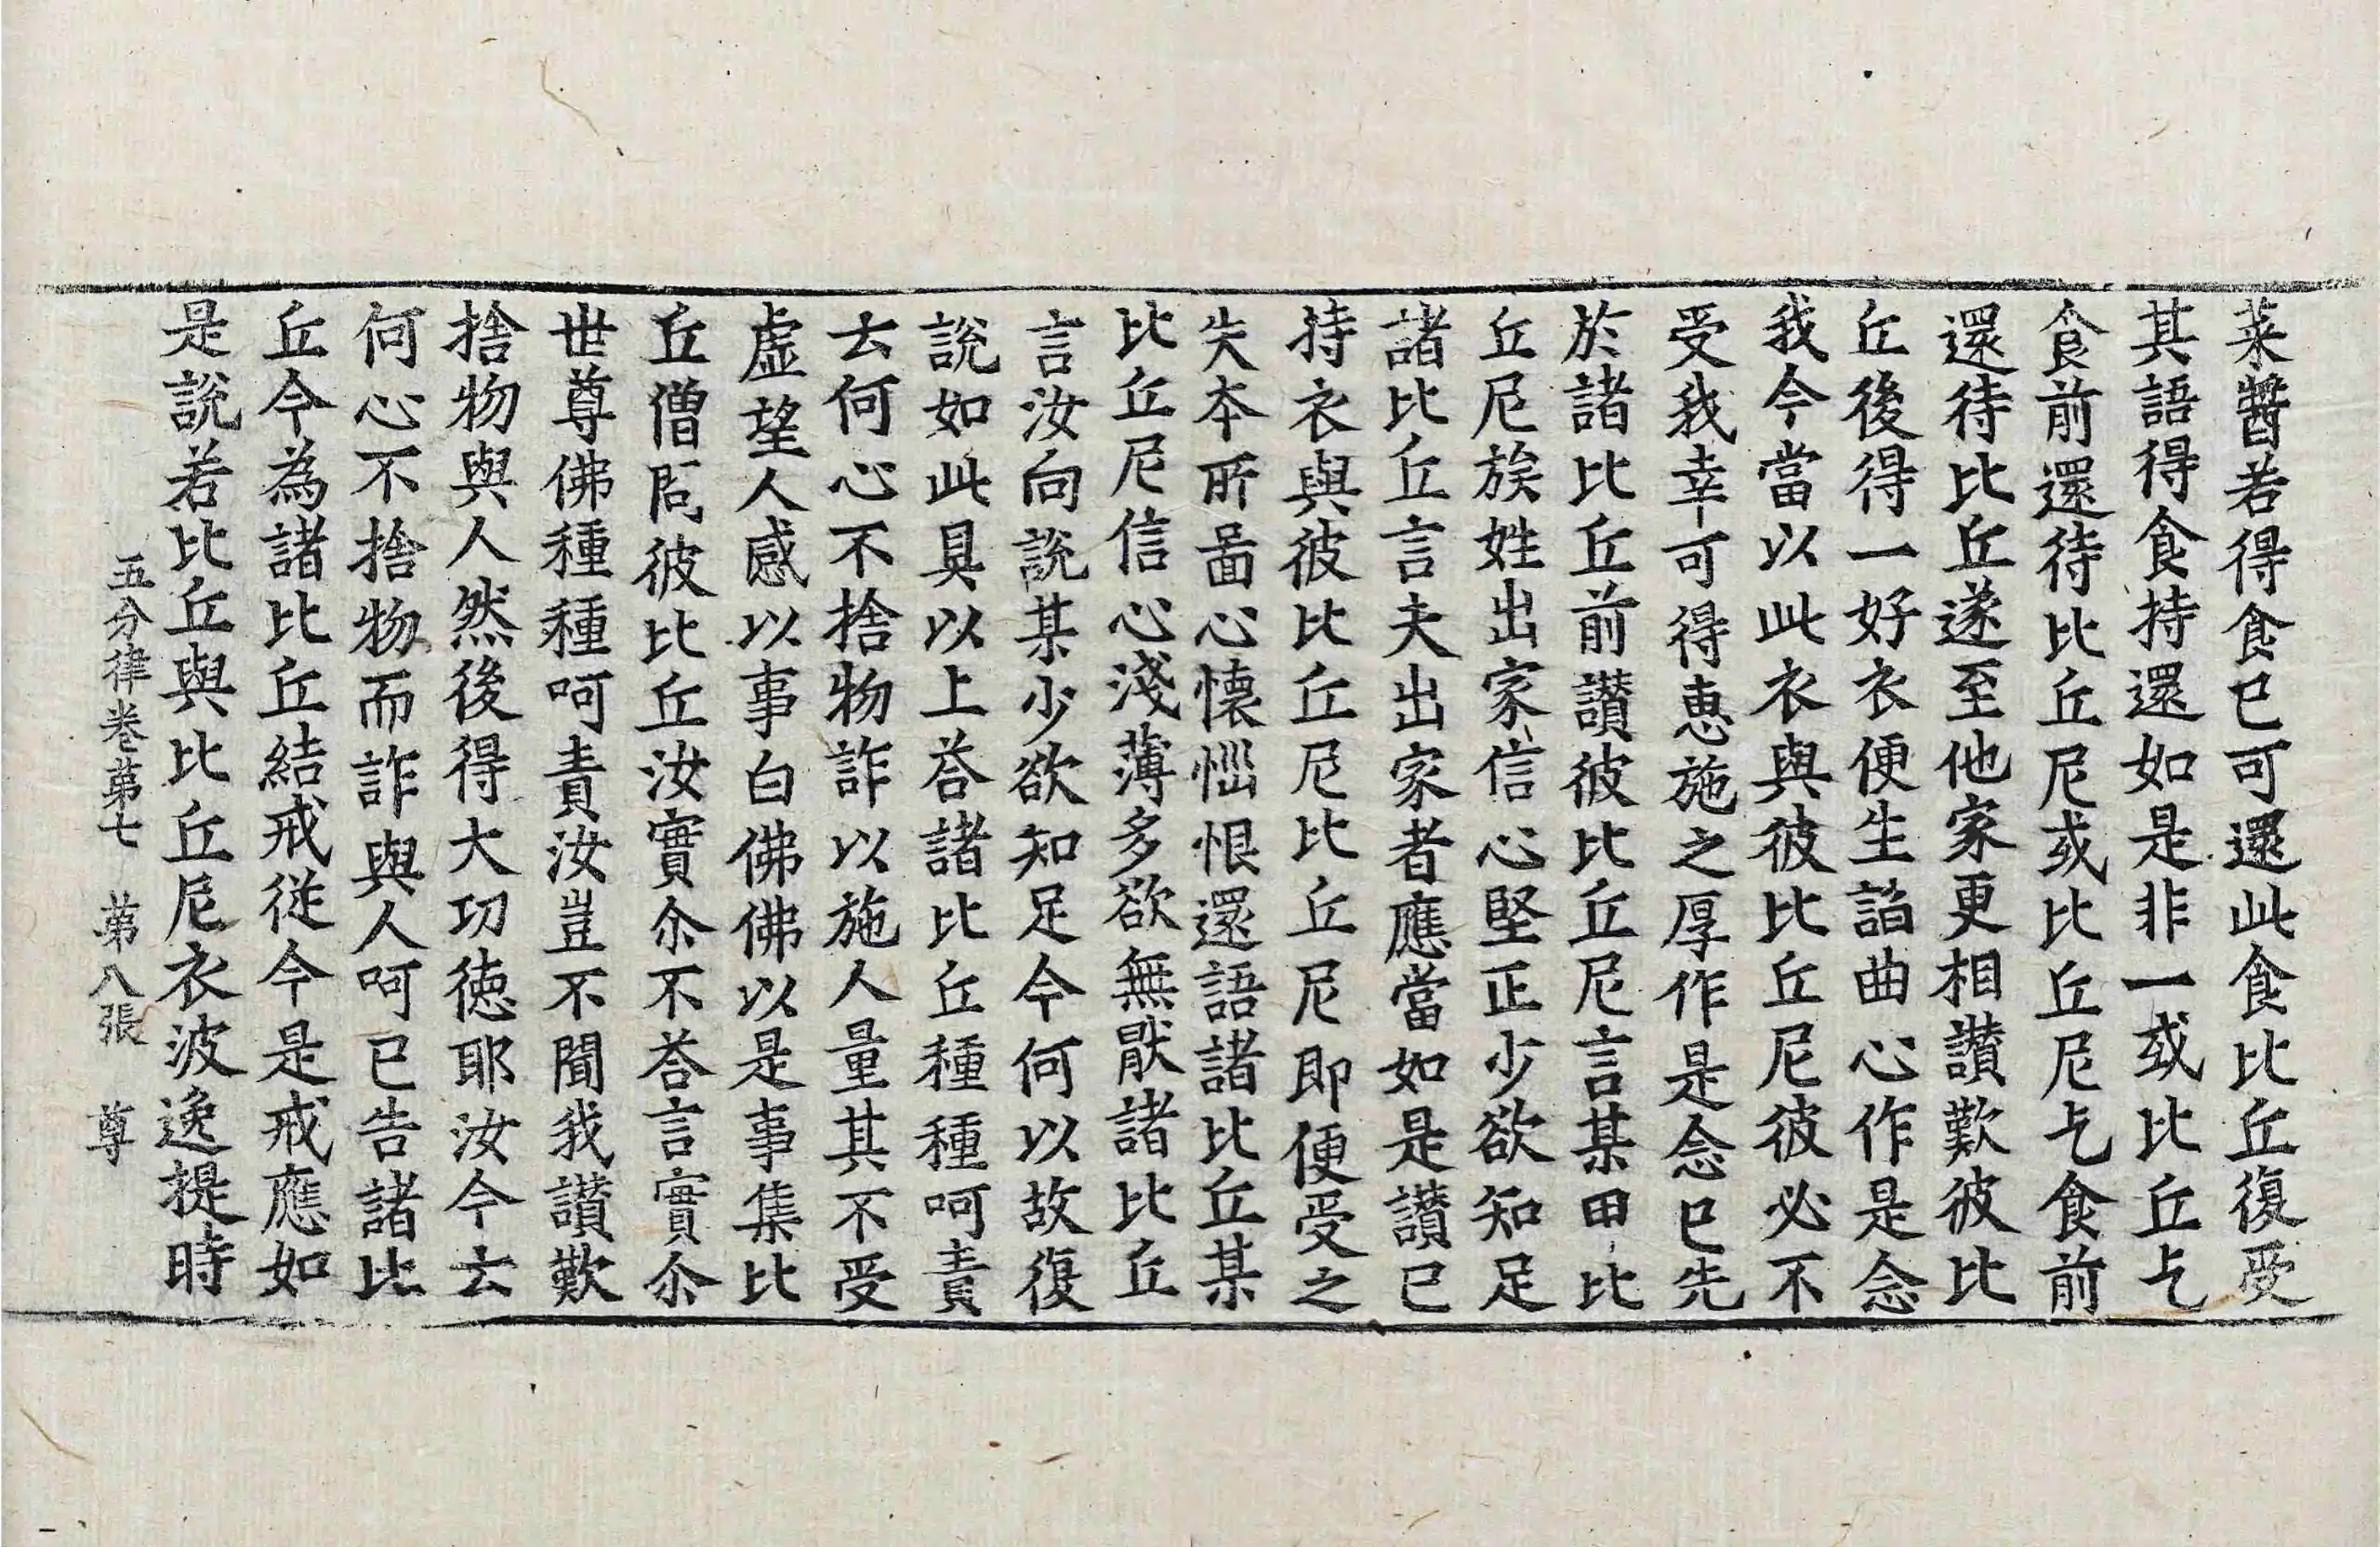 菜醬若得食已可還此食比丘復受
其語得食持還如是非一或比丘乞
食前還待比丘尼或比丘尼乞食前
還待比丘遂至他家更相讃歎彼比
丘後得一好衣便生諂曲心作是念
我今當以此衣與彼比丘尼彼必不
受我幸可得惠施之厚作是念已先
於諸比丘前讃彼比丘尼言某甲比
丘尼族姓出家信心堅正少欲知足
諸比丘言夫出家者應當如是讃已
持衣與彼比丘尼比丘尼即便受之
失本所啚心懷惱恨還語諸比丘某
比丘尼信心淺薄多欲無猒諸比丘
言汝向說某少欲知足今何以故復
說如此具以上荅諸比丘種種呵責
云何心不捨物詐以施人量其不受
虛望人感以事白佛佛以是事集比
丘僧問彼比丘汝實尒不荅言實尒
世尊佛種種呵責汝豈不聞我讃歎
捨物與人然後得大功德耶汝今云
何心不捨物而詐與人呵已告諸比
丘今為諸比丘結戒從今是戒應如
是說若比丘與比丘尼衣波逸提時
五分律卷苐七 苐八張 尊